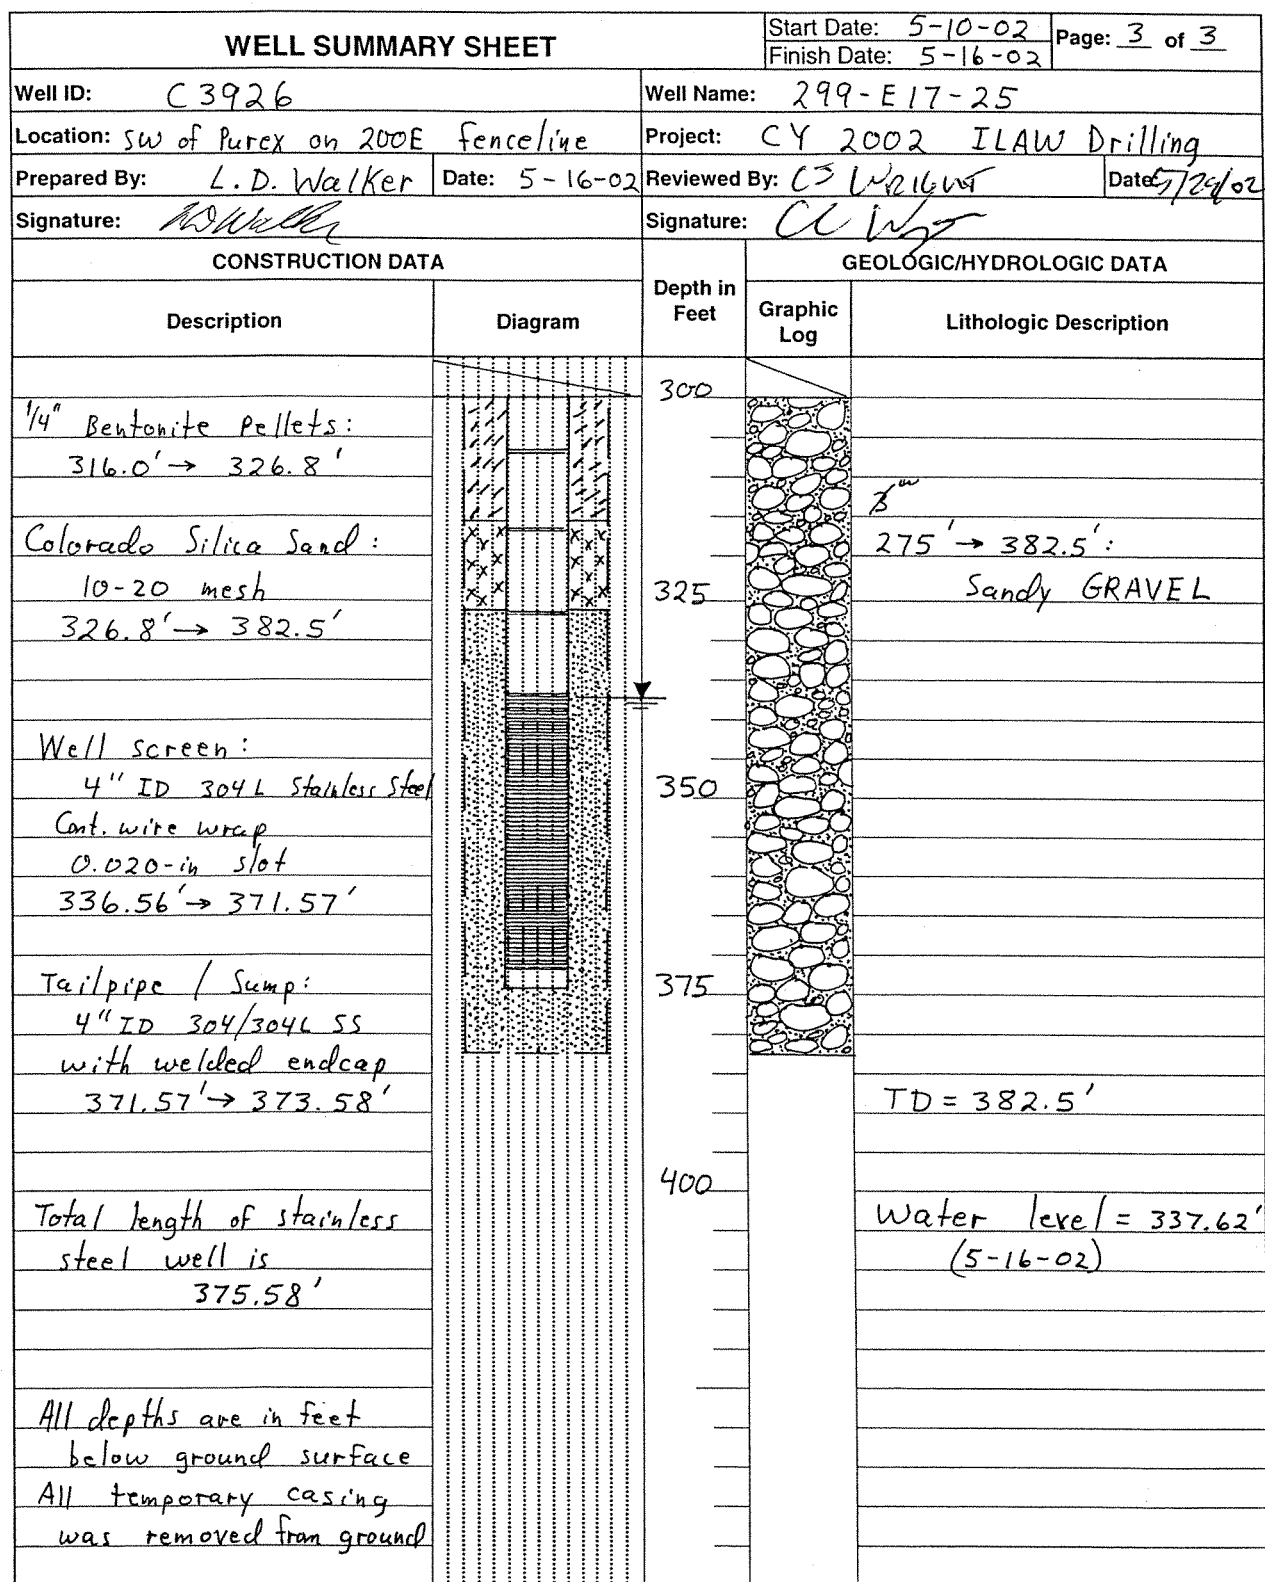 WELL SUMMARY SHEET
Start Date: 5-10-02
Finish Date: 5-16-02
Page: 3 of 3
Well ID: C3926
Well Name: 299-E17-25
Location: SW of Purex on 200E fenceline
Project: CY 2002 ILAW Drilling
Prepared By: L.D. Walker
Date: 5-16-02
Reviewed By: CS WRIGHT
Date: 5/29/02
Signature: LD Walker
Signature:
CONSTRUCTION DATA
Depth in
Feet
GEOLOGIC/HYDROLOGIC DATA
Description
Diagram
Graphic
Log
Lithologic Description
1/4" Bentonite Pellets:
316.0' → 326.8'
Colorado Silica Sand:
10-20 mesh
326.8' → 382.5'
Well screen:
4" ID 304L Stainless Steel
Cont. wire wrap
0.020-in slot
336.56' → 371.57'
Tailpipe / Sump:
4" ID 304/304L SS
with welded endcap
371.57' → 373.58'
Total length of stainless
steel well is
375.58'
All depths are in feet
below ground surface
All temporary casing
was removed from ground
300
325
350
375
400
275' → 382.5':
Sandy GRAVEL
TD = 382.5'
Water level = 337.62'
(5-16-02)